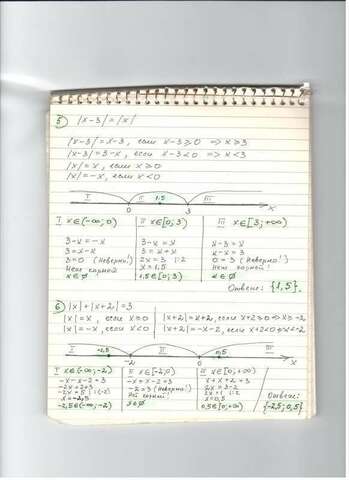 5) |x-3| = |x|
|x-3| = x-3, если x-3≥0 => x≥3
|x-3| = 3-x, если x-3<0 => x<3
|x| = x, если x≥0
|x| = -x, если x<0
I II 1,5 III
0 3 x
I x∈(-∞; 0) II x∈[0; 3) III x∈[3; +∞)
3-x = -x 3-x = x x-3 = x
3 = x-x 3 = x+x x-x = 3
3 = 0 (Неверно!) 2x = 3 |:2 0 = 3 (Неверно!)
Нет корней x = 1,5 Нет корней!
x∈∅ 1,5∈[0; 3) x∈∅
Ответ: {1,5}.
6) |x| + |x+2| = 3
|x| = x, если x≥0 |x+2| = x+2, если x+2≥0 => x≥-2
|x| = -x, если x<0 |x+2| = -x-2, если x+2<0 => x<-2
I -2,5 II 0,5 III
-2 0 x
I x∈(-∞; -2) II x∈[-2; 0) III x∈[0; +∞)
-x-x-2 = 3 -x+x+2 = 3 x+x+2 = 3
-2x = 2+3 2x = 3-2
-2x = 5 |:(-2) Нет корней! 2x = 1 |:2
x = -2,5 x∈∅ x = 0,5
-2,5∈(-∞; -2) 0,5∈[0; +∞)
Ответ:
{-2,5; 0,5}